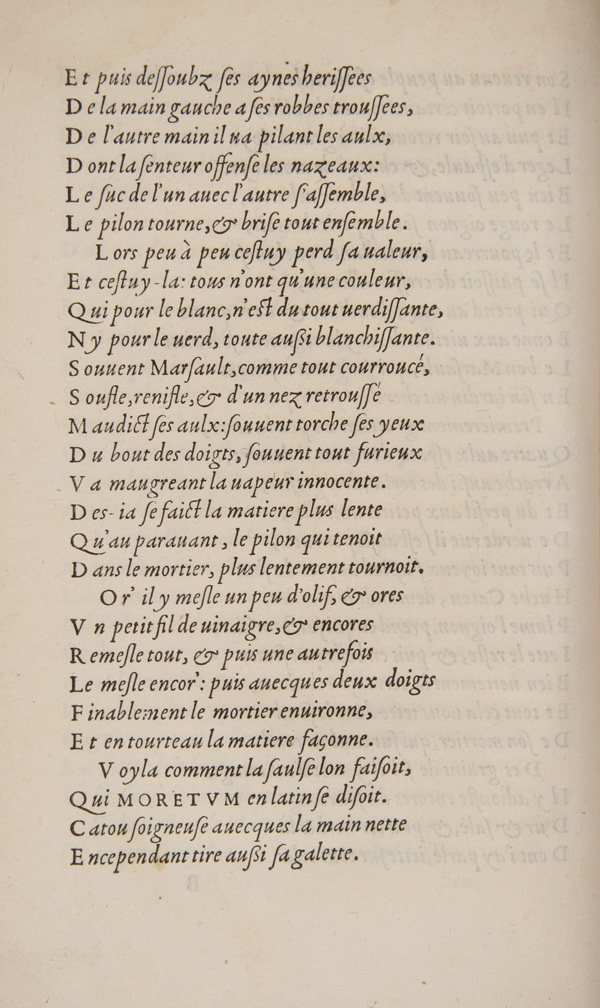 Et puis deſſoubz ſes aynes heriſſees
De la main gauche a ſes robbes trouſſees,
De l'autre main il ua pilant les aulx,
Dont la ſenteur offenſe les nazeaux:
Le ſuc de l'un auec l'autre ſ'aſſemble,
Le pilon tourne, & briſe tout enſemble.
Lors peu à peu ceſtuy perd ſa ualeur,
Et ceſtuy-la: tous n'ont qu'une couleur,
Qui pour le blanc, n'eſt du tout uerdiſſante,
Ny pour le uerd, toute außi blanchiſſante.
Souuent Marſault, comme tout courroucé,
Soufle, renifle, & d'un nez retrouſſé
Maudict ſes aulx: ſouuent torche ſes yeux
Du bout des doigts, ſouuent tout furieux
Va maugreant la uapeur innocente.
Des-ia ſe faict la matiere plus lente
Qu'au parauant, le pilon qui tenoit
Dans le mortier, plus lentement tournoit.
Or' il y meſle un peu d'olif, & ores
Vn petit fil de uinaigre, & encores
Remeſle tout, & puis une autrefois
Le meſle encor': puis auecques deux doigts
Finablement le mortier enuironne,
Et en tourteau la matiere façonne.
Voyla comment la ſaulſe lon faiſoit,
Qui MORETVM en latin ſe diſoit.
Catou ſoigneuſe auecques la main nette
Encependant tire außi ſa galette.